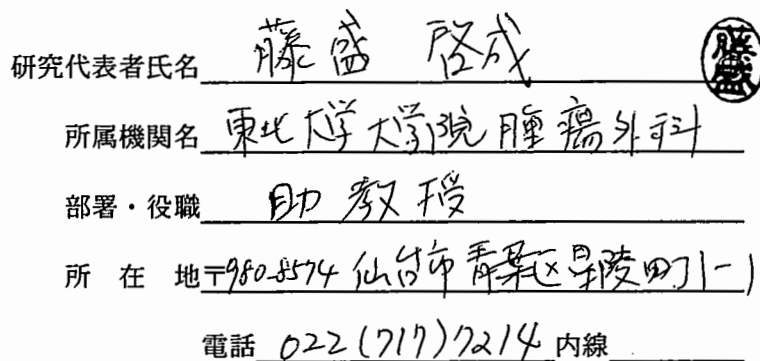 研究代表者氏名 藤盛 啓成 藤盛
所属機関名 東北大学大学院 腫瘍外科
部署・役職 助教授
所在地 〒980-8574 仙台市青葉区星陵町1-1
電話 022(717)7214 内線